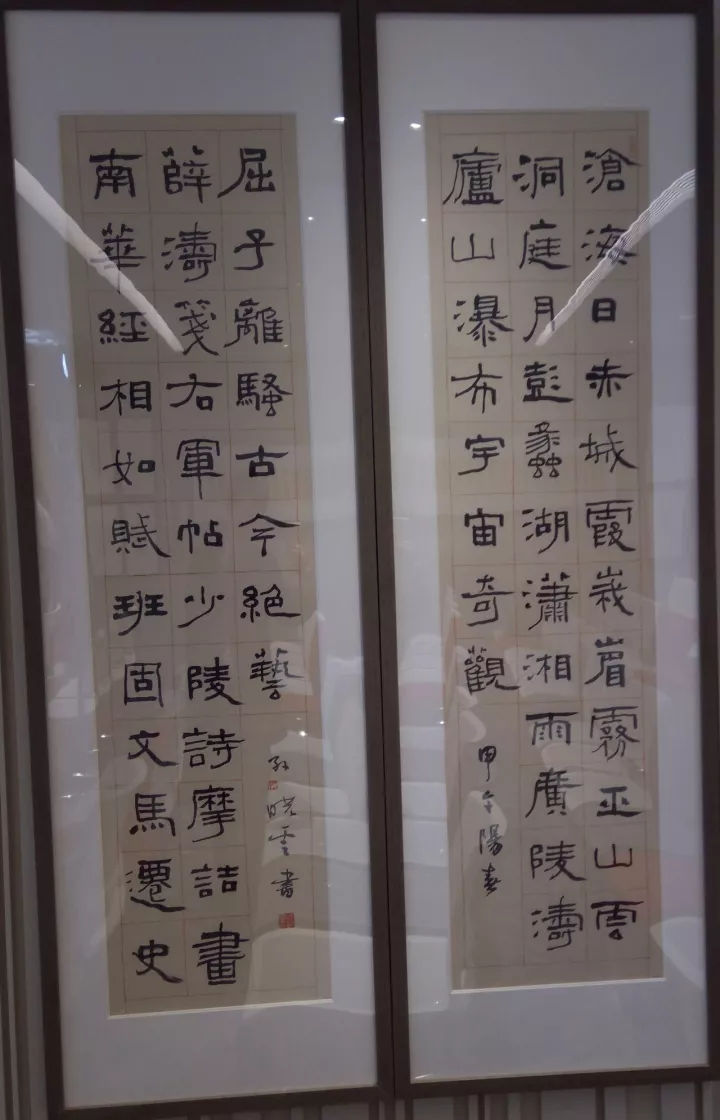 滄海日赤城霞峩眉霧巫山雲
洞庭月彭蠡湖瀟湘雨廣陵濤
廬山瀑布宇宙奇觀
甲午陽春
南華經相如賦班固文馬遷史
薛濤箋右軍帖少陵詩摩詰畫
屈子離騷古今絕藝
孫曉雲書